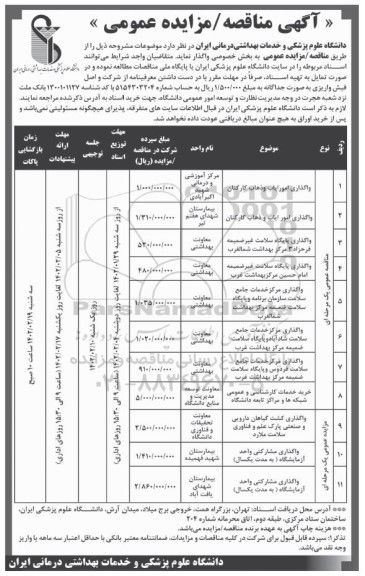 « آگهی مناقصه/مزایده عمومی »
دانشگاه علوم پزشکی و خدمات بهداشتی درمانی ایران
دانشگاه علوم پزشکی و خدمات بهداشتی‌درمانی ایران در نظر دارد موضوعات مشروحه ذیل را از
طریق مناقصه/مزایده عمومی به بخش خصوصی واگذار نماید. متقاضیان واجد شرایط می‌توانند
اسناد مربوطه را در سایت دانشگاه علوم پزشکی ایران یا پایگاه ملی مناقصات مطالعه نموده و در
صورت تمایل به تهیه اسناد، صرفاً در مهلت مقرر با در دست داشتن معرفینامه از شرکت و اصل
فیش واریزی به صورت جداگانه به مبلغ ۱/۵۰۰/۰۰۰ ریال به حساب شماره
بانک ملت
نزد شعبه هجرت در وجه مدیریت نظارت و توسعه امور عمومی دانشگاه، جهت خرید اسناد به آدرس ذکر شده مراجعه نمایند.
لازم به ذکر است دانشگاه علوم پزشکی ایران در قبال اطلاعات سایت های متفرقه، پذیرای هیچگونه مسئولیتی نمی‌باشد و
پس از خرید اوراق به هیچ عنوان مبالغ دریافتی عودت داده نخواهد شد.
ردیف نوع موضوع واحد مبلغ سپرده مناقصه/مزایده (ریال) مهلت توزیع اسناد جلسه توجیهی مهلت ارائه پیشنهادات زمان بازگشایی پاکات
مناقصه عمومی یک مرحله ای
۱ واگذاری امور ایاب وذهاب کارکنان مرکز آموزشی و درمانی شهید اکبرآبادی ۱/۰۰۰/۰۰۰/۰۰۰
۲ واگذاری امور ایاب و ذهاب کارکنان بیمارستان شهدای هفتم تیر ۱/۳۱۰/۰۰۰/۰۰۰
۳ واگذاری پایگاه سلامت غیرضمیمه فرحزاد ۳ مرکز بهداشت شمالغرب معاونت بهداشتی ۵۲۰/۰۰۰/۰۰۰
۴ واگذاری پایگاه سلامت غیرضمیمه امام حسین مرکز بهداشت غرب معاونت بهداشتی ۴۸۰/۰۰۰/۰۰۰
۵ واگذاری مرکز خدمات جامع سلامت سازمان برنامه وپایگاه سلامت ضمیمه مرکز بهداشت شمالغرب معاونت بهداشتی ۱/۰۳۵/۰۰۰/۰۰۰
۶ واگذاری مرکز خدمات جامع سلامت شادآباد وپایگاه سلامت ضمیمه مرکز بهداشت غرب معاونت بهداشتی ۱/۰۲۰/۰۰۰/۰۰۰
۷ واگذاری مرکز خدمات جامع سلامت فردوس وپایگاه سلامت ضمیمه مرکز بهداشت غرب معاونت بهداشتی ۹۱۰/۰۰۰/۰۰۰
۸ خرید خدمات کارشناسی و عمومی شبکه ها و مراکز تابعه دانشگاه معاونت توسعه مدیریت و منابع دانشگاه ۵/۰۰۰/۰۰۰/۰۰۰
مزایده عمومی یک مرحله ای
۹ واگذاری کشت گیاهان دارویی و صنعتی پارک علم و فناوری سلامت ملارد معاونت تحقیقات و فناوری دانشگاه ۲/۵۰۰/۰۰۰/۰۰۰
۱۰ واگذاری مشارکتی واحد آزمایشگاه (به مدت یکسال) بیمارستان شهید فهمیده ۱/۴۱۰/۰۰۰/۰۰۰
۱۱ واگذاری مشارکتی واحد آزمایشگاه (به مدت یکسال) بیمارستان شهدای یافت آباد ۲/۸۶۰/۰۰۰/۰۰۰
سه شنبه ۱۴۰۲/۰۲/۱۹ ساعت ۱۰ صبح
ParsNamadData
*** آدرس محل دریافت اسناد: تهران، بزرگراه همت، خروجی برج میلاد، میدان آرش، دانشگاه علوم پزشکی ایران،
ساختمان ستاد مرکزی، طبقه دوم، اتاق محرمانه شماره ۲۰۴
*** هزینه چاپ آگهی به عهده برنده مناقصه/مزایده می‌باشد.
تذکر۱: سپرده قابل قبول برای شرکت در کلیه مناقصات و مزایدات، ضمانتنامه معتبر بانکی با حداقل اعتبار سه ماهه یا واریز
وجه نقد می‌باشد.
دانشگاه علوم پزشکی و خدمات بهداشتی درمانی ایران